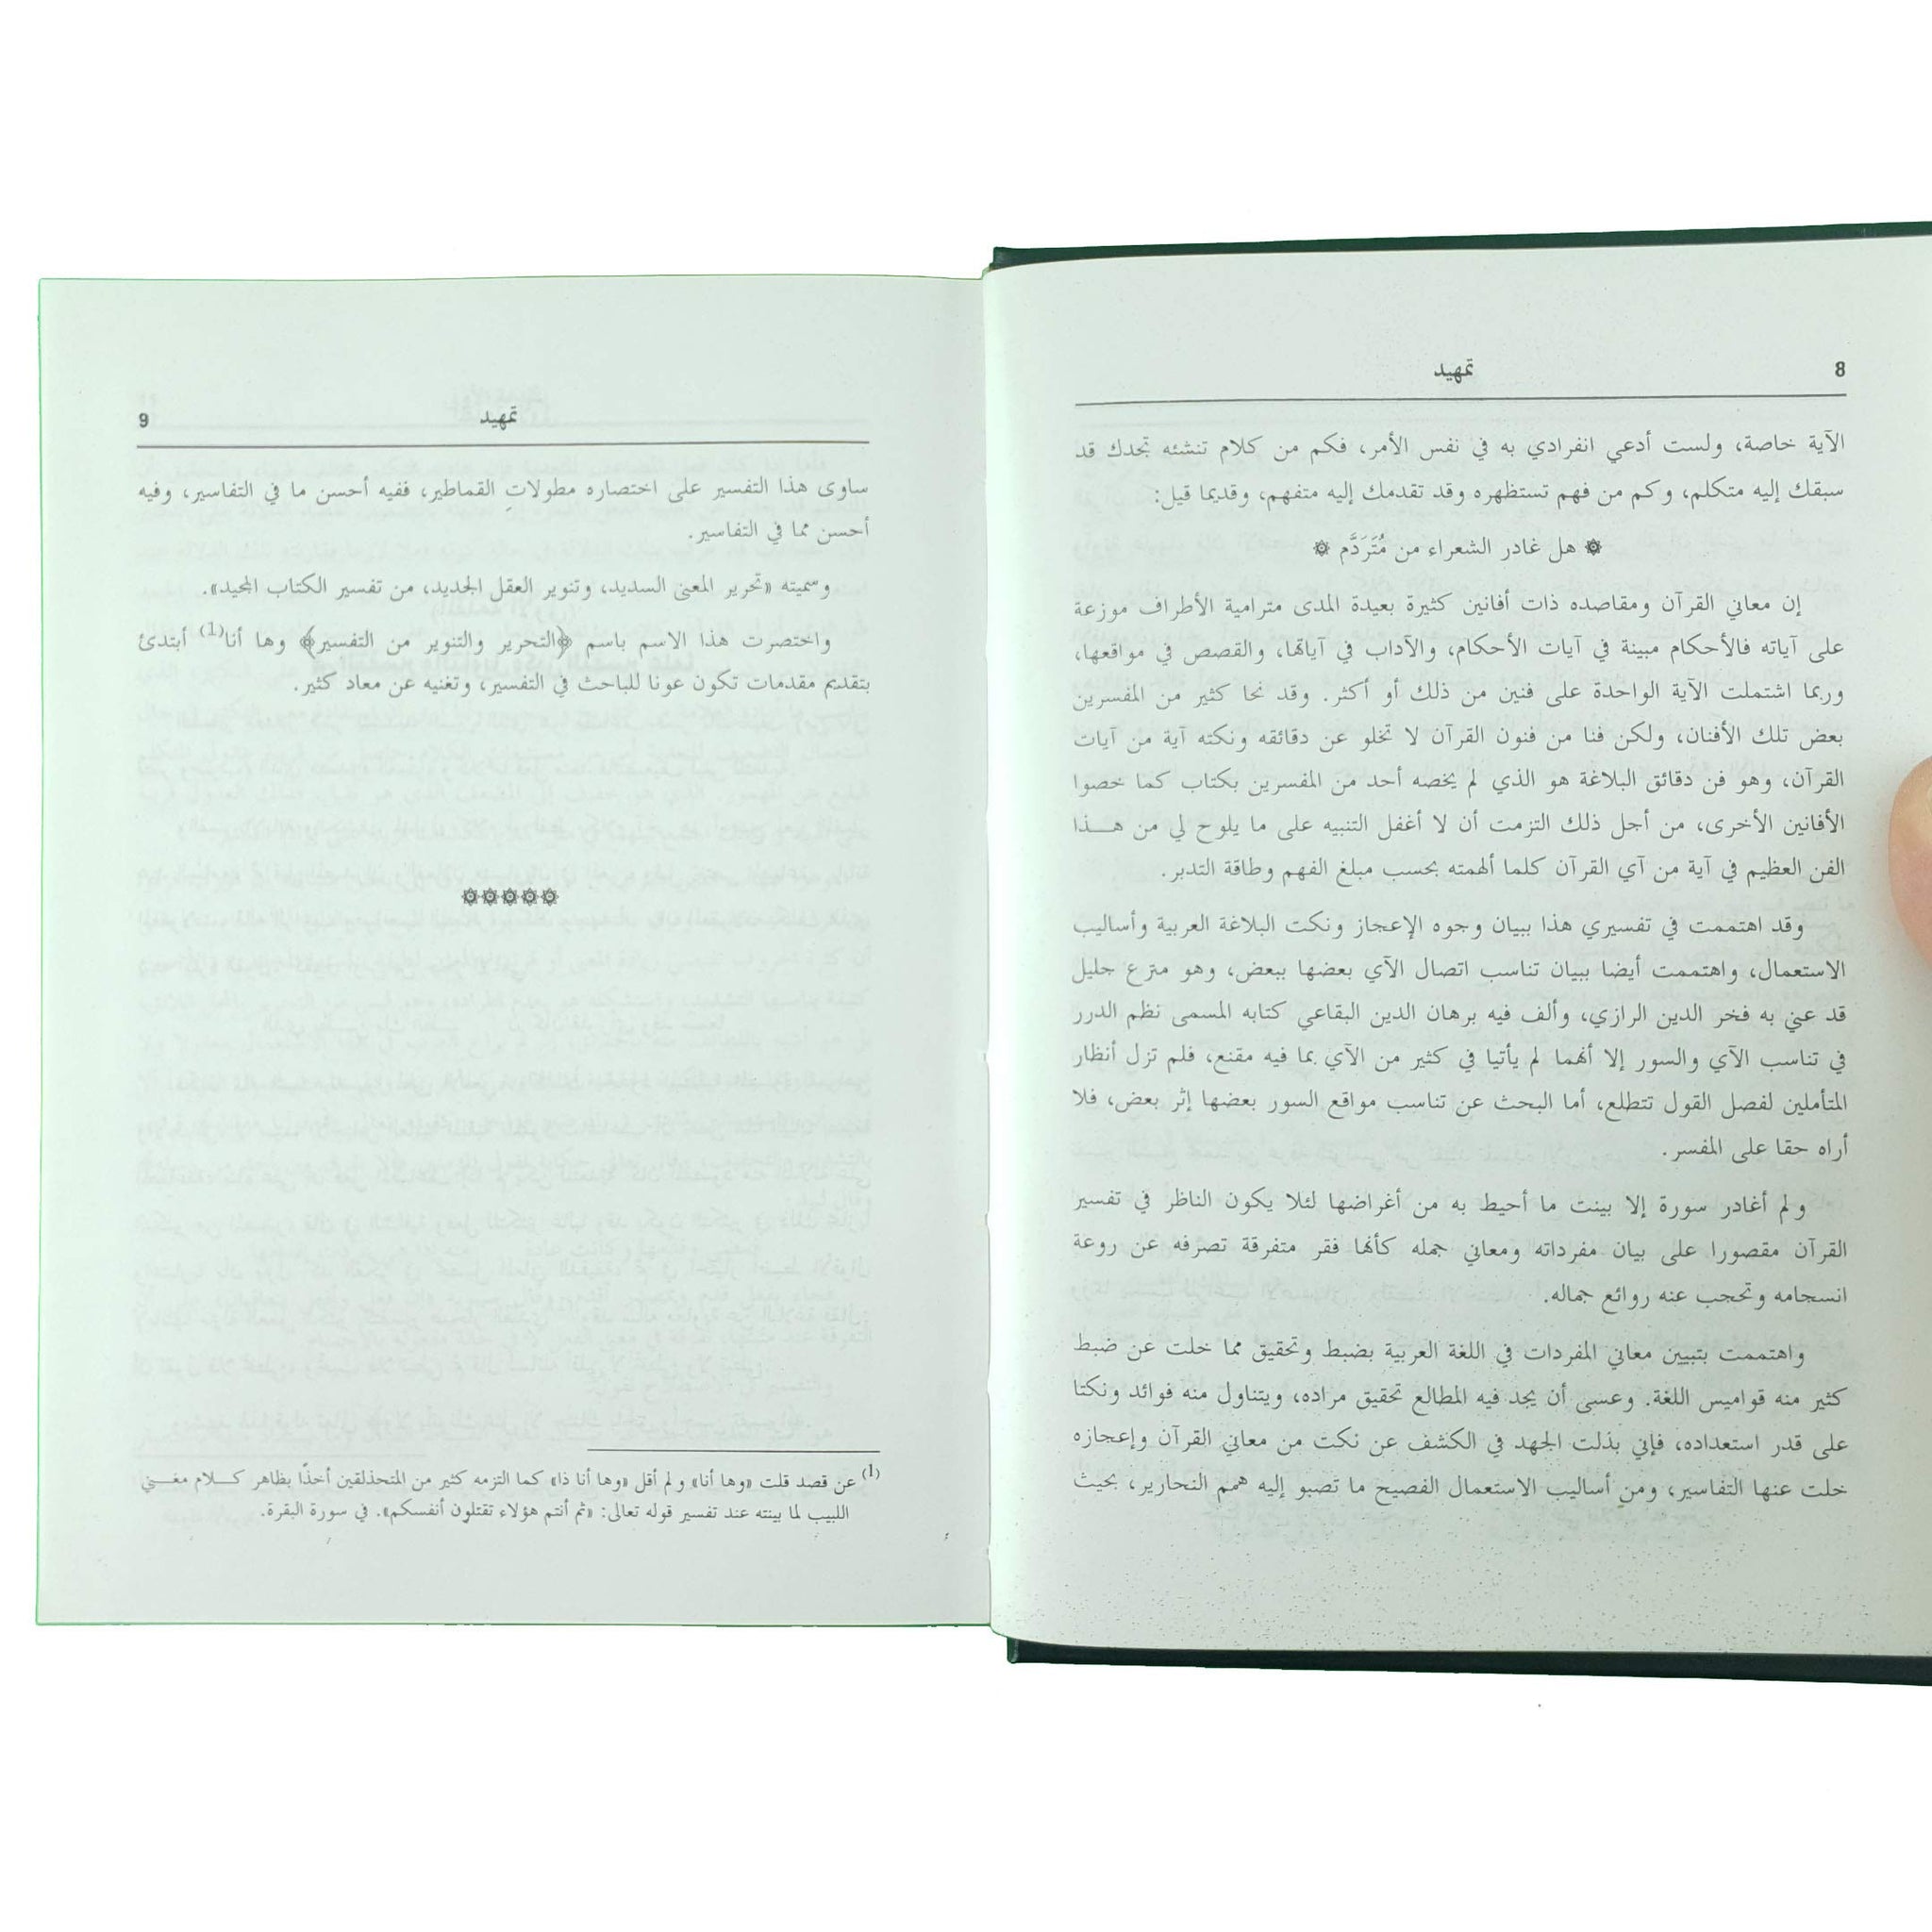 8
تمهيد
الآية خاصة، ولست أدعي انفرادي به في نفس الأمر، فكم من كلام تنشئه تجدك قد
سبقك إليه متكلم، وكم من فهم تستظهره وقد تقدمك إليه متفهم، وقديما قيل:
۞ هل غادر الشعراء من مُتَرَدَّم ۞
إن معاني القرآن ومقاصده ذات أفانين كثيرة بعيدة المدى مترامية الأطراف موزعة
على آياته فالأحكام مبينة في آيات الأحكام، والآداب في آياتها، والقصص في مواقعها،
وربما اشتملت الآية الواحدة على فنين من ذلك أو أكثر. وقد نحا كثير من المفسرين
بعض تلك الأفنان، ولكن فنا من فنون القرآن لا تخلو عن دقائقه ونكته آية من آيات
القرآن، وهو فن دقائق البلاغة هو الذي لم يخصه أحد من المفسرين بكتاب كما خصوا
الأفانين الأخرى، من أجل ذلك التزمت أن لا أغفل التنبيه على ما يلوح لي من هــذا
الفن العظيم في آية من آي القرآن كلما ألهمته بحسب مبلغ الفهم وطاقة التدبر.
وقد اهتممت في تفسيري هذا ببيان وجوه الإعجاز ونكت البلاغة العربية وأساليب
الاستعمال، واهتممت أيضا ببيان تناسب اتصال الآي بعضها ببعض، وهو مترع جليل
قد عني به فخر الدين الرازي، وألف فيه برهان الدين البقاعي كتابه المسمى نظم الدرر
في تناسب الآي والسور إلا أنهما لم يأتيا في كثير من الآي بما فيه مقنع، فلم تزل أنظار
المتأملين لفصل القول تتطلع، أما البحث عن تناسب مواقع السور بعضها إثر بعض، فلا
أراه حقا على المفسر.
ولم أغادر سورة إلا بينت ما أحيط به من أغراضها لئلا يكون الناظر في تفسير
القرآن مقصورا على بيان مفرداته ومعاني جمله كأنها فقر متفرقة تصرفه عن روعة
انسجامه وتحجب عنه روائع جماله.
واهتممت بتبيين معاني المفردات في اللغة العربية بضبط وتحقيق مما خلت عن ضبط
كثير منه قواميس اللغة. وعسى أن يجد فيه المطالع تحقيق مراده، ويتناول منه فوائد ونكتا
على قدر استعداده، فإني بذلت الجهد في الكشف عن نكت من معاني القرآن وإعجازه
خلت عنها التفاسير، ومن أساليب الاستعمال الفصيح ما تصبو إليه همم النحارير، بحيث
تمهيد
9
ساوى هذا التفسير على اختصاره مطولاتِ القماطير، ففيه أحسن ما في التفاسير، وفيه
أحسن مما في التفاسير.
وسميته «تحرير المعنى السديد، وتنوير العقل الجديد، من تفسير الكتاب المجيد».
واختصرت هذا الاسم باسم ﴿التحرير والتنوير من التفسير﴾ وها أنا(1) أبتدئ
بتقديم مقدمات تكون عونا للباحث في التفسير، وتغنيه عن معاد كثير.
۞۞۞۞۞
(1) عن قصد قلت «وها أنا» ولم أقل «وها أنا ذا» كما التزمه كثير من المتحذلقين أخذًا بظاهر كــلام مغــني
اللبيب لما بينته عند تفسير قوله تعالى: «ثم أنتم هؤلاء تقتلون أنفسكم». في سورة البقرة.